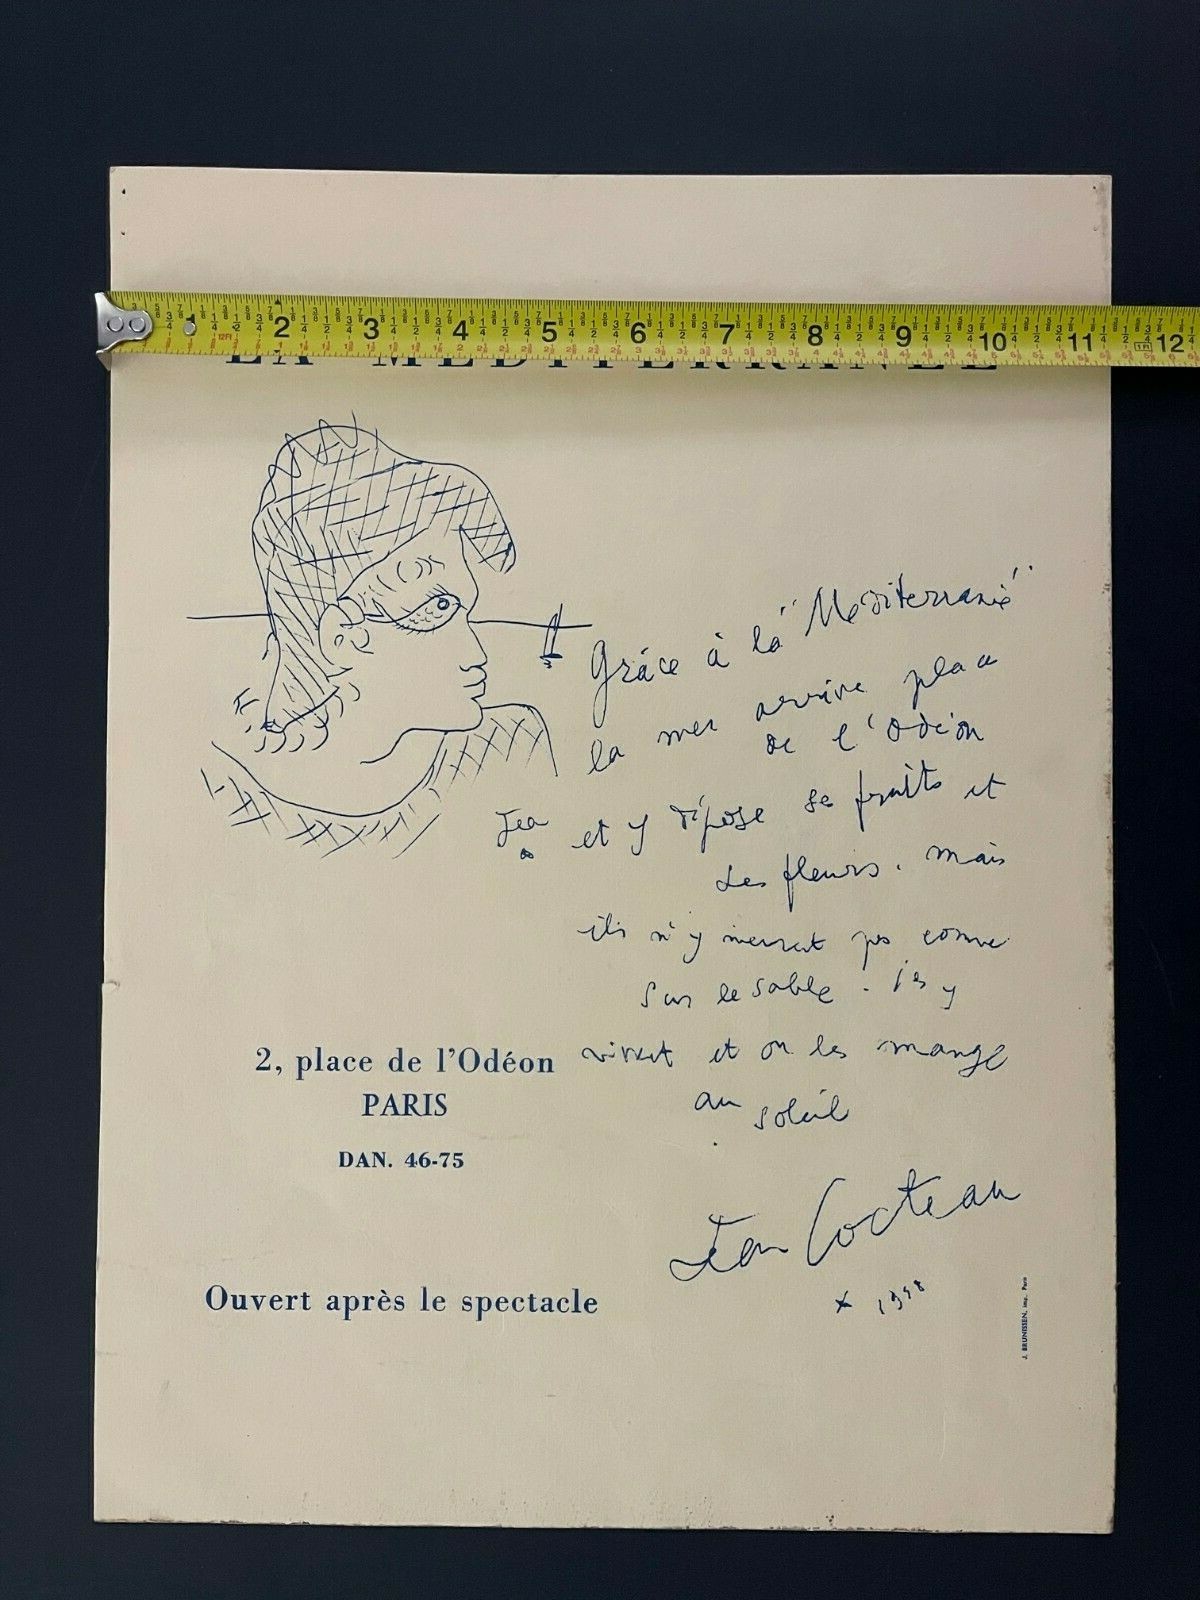 2 3 4 5 6 7 8 9 10 11 12
LA MÉDITERRANÉE
Grâce à la "Méditerranée"
la mer arrive place
de l'Odéon
Jean et y dépose ses fruits et
ses fleurs. Mais
ils n'y meurent pas comme
sur le sable. ils y
vivent et on les mange
au soleil
2, place de l'Odéon
PARIS
DAN. 46-75
Jean Cocteau
1958
Ouvert après le spectacle
J. BRUNISSEN, imp. Paris